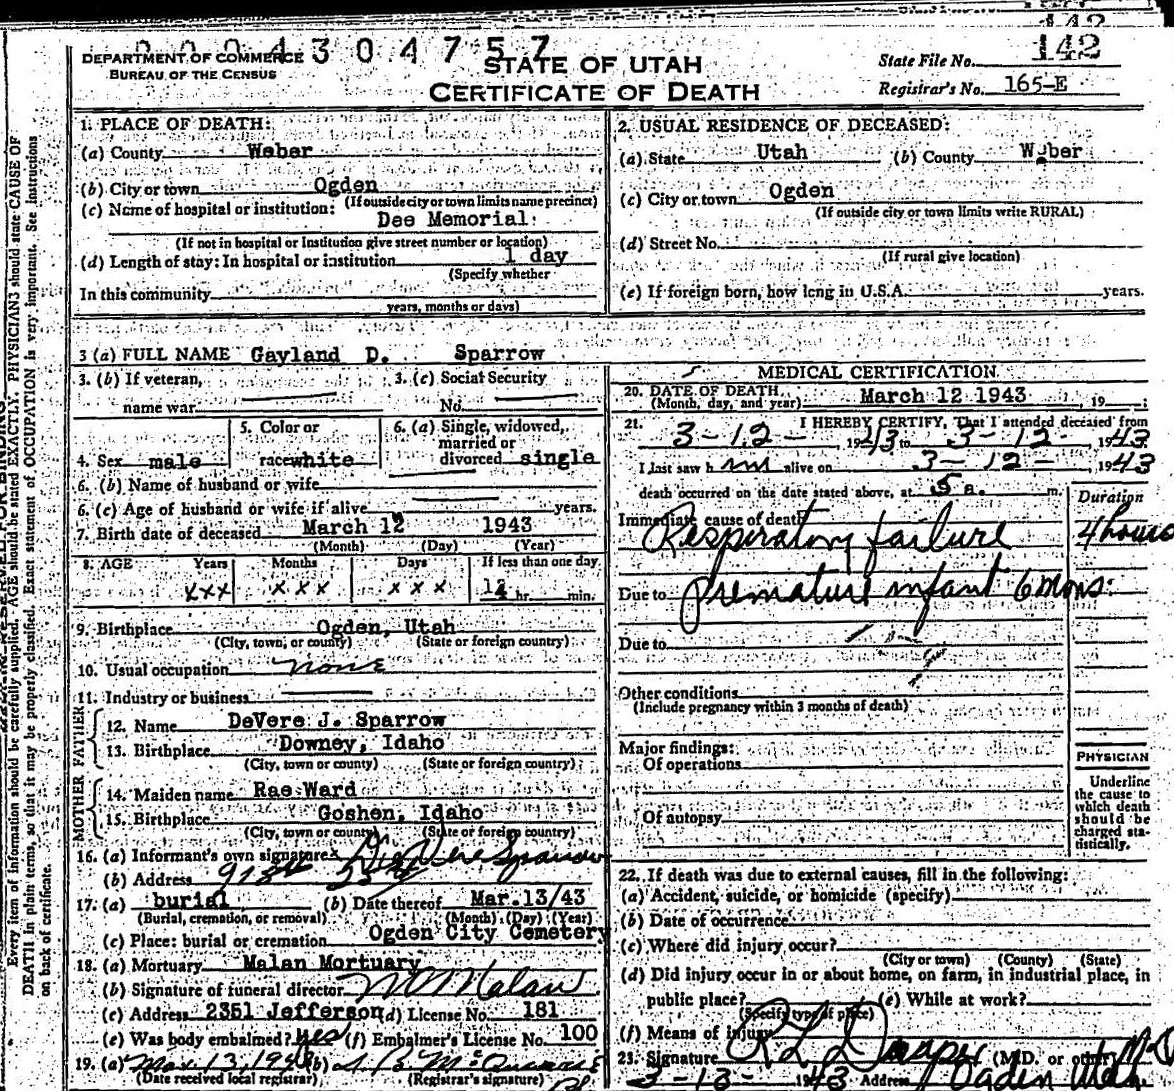 142
DEPARTMENT OF COMMERCE
BUREAU OF THE CENSUS
304757
STATE OF UTAH
CERTIFICATE OF DEATH
State File No. 142
Registrar's No. 165-E
1. PLACE OF DEATH:
(a) County Weber
(b) City or town Ogden
(If outside city or town limits name precinct)
(c) Name of hospital or institution:
Dee Memorial
(If not in hospital or institution give street number or location)
(d) Length of stay: In hospital or institution 1 day
(Specify whether
In this community
years, months or days)
2. USUAL RESIDENCE OF DECEASED:
(a) State Utah (b) County Weber
(c) City or town Ogden
(If outside city or town limits write RURAL)
(d) Street No.
(If rural give location)
(e) If foreign born, how long in U.S.A. years.
3 (a) FULL NAME Gayland D. Sparrow
3. (b) If veteran, name war
3. (c) Social Security No.
4. Sex male
5. Color or race white
6. (a) Single, widowed, married or divorced single
6. (b) Name of husband or wife
6. (c) Age of husband or wife if alive years.
7. Birth date of deceased March 12 1943
(Month) (Day) (Year)
8. AGE Years Months Days If less than one day
xxx xxx xxx hr. min.
9. Birthplace Ogden, Utah
(City, town, or county) (State or foreign country)
10. Usual occupation none
11. Industry or business
FATHER
12. Name DeVere J. Sparrow
13. Birthplace Downey, Idaho
(City, town or county) (State or foreign country)
MOTHER
14. Maiden name Rae Ward
15. Birthplace Goshen, Idaho
(City, town or county) (State or foreign country)
16. (a) Informant's own signature x DeVere Sparrow
(b) Address
17. (a) burial (b) Date thereof Mar.13/43
(Burial, cremation, or removal) (Month) (Day) (Year)
(c) Place: burial or cremation Ogden City Cemetery
18. (a) Mortuary Malan Mortuary
(b) Signature of funeral director Malan
(c) Address 2351 Jefferson (d) License No. 181
(e) Was body embalmed? yes (f) Embalmer's License No. 100
19. (a) Mar. 13, 1943 (b)
(Date received local registrar) (Registrar's signature)
MEDICAL CERTIFICATION
20. DATE OF DEATH
(Month, day, and year) March 12 1943, 19 ;
21. I HEREBY CERTIFY, That I attended deceased from
3-12-, 1943 to 3-12-, 1943
I last saw h im alive on 3-12-, 1943
death occurred on the date stated above, at 5 a. m.
Duration
Immediate cause of death
Respiratory failure 4 hours
Due to premature infant 6 mons.
Due to
Other conditions
(Include pregnancy within 3 months of death)
Major findings:
Of operations
Of autopsy
PHYSICIAN
Underline
the cause to
which death
should be
charged sta-
tistically.
22. If death was due to external causes, fill in the following:
(a) Accident, suicide, or homicide (specify)
(b) Date of occurrence
(c) Where did injury occur?
(City or town) (County) (State)
(d) Did injury occur in or about home, on farm, in industrial place, in
public place? (e) While at work?
(Specify type of place)
(f) Means of injury
23. Signature R L Draper (M.D. or other) M.D.
3-13- 1943 Address Ogden Utah
Every item of information should be carefully supplied. AGE should be stated EXACTLY. PHYSICIANS should state CAUSE OF
DEATH in plain terms, so that it may be properly classified. Exact statement of OCCUPATION is very important. See instructions
on back of certificate.